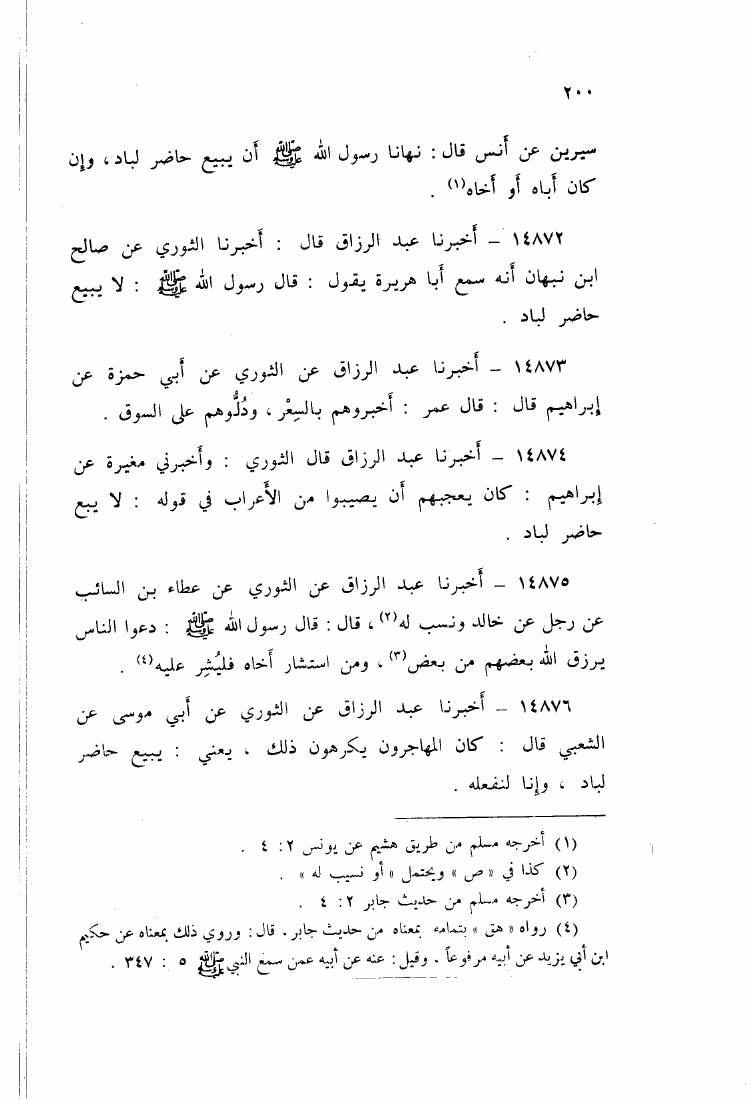 ٢٠٠
سيرين عن أنس قال : نهانا رسول الله ﷺ أن يبيع حاضر لباد ، وإن
كان أباه أو أخاه(١) .
١٤٨٧٢ – أخبرنا عبد الرزاق قال : أخبرنا الثوري عن صالح
ابن نبهان أنه سمع أبا هريرة يقول : قال رسول الله ﷺ : لا يبيع
حاضر لباد .
١٤٨٧٣ – أخبرنا عبد الرزاق عن الثوري عن أبي حمزة عن
إبراهيم قال : قال عمر : أخبروهم بالسِعْر ، ودُلُّوهم على السوق .
١٤٨٧٤ – أخبرنا عبد الرزاق قال الثوري : وأخبرني مغيرة عن
إبراهيم : كان يعجبهم أن يصيبوا من الأعراب في قوله : لا يبع
حاضر لباد .
١٤٨٧٥ – أخبرنا عبد الرزاق عن الثوري عن عطاء بن السائب
عن رجل عن خالد ونسب له(٢) ، قال : قال رسول الله ﷺ : دعوا الناس
يرزق الله بعضهم من بعض(٣) ، ومن استشار أخاه فليُشِر عليه(٤) .
١٤٨٧٦ – أخبرنا عبد الرزاق عن الثوري عن أبي موسى عن
الشعبي قال : كان المهاجرون يكرهون ذلك ، يعني : يبيع حاضر
لباد ، وإنا لنفعله .
(١) أخرجه مسلم من طريق هشيم عن يونس ٢ : ٤ .
(٢) كذا في « ص » ويحتمل « أو نسيب له » .
(٣) أخرجه مسلم من حديث جابر ٢ : ٤ .
(٤) رواه « هق » بتمامه بمعناه من حديث جابر . قال : وروي ذلك بمعناه عن حكيم
ابن أبي يزيد عن أبيه مرفوعاً . وقيل : عنه عن أبيه عمن سمع النبي ﷺ ٥ : ٣٤٧ .